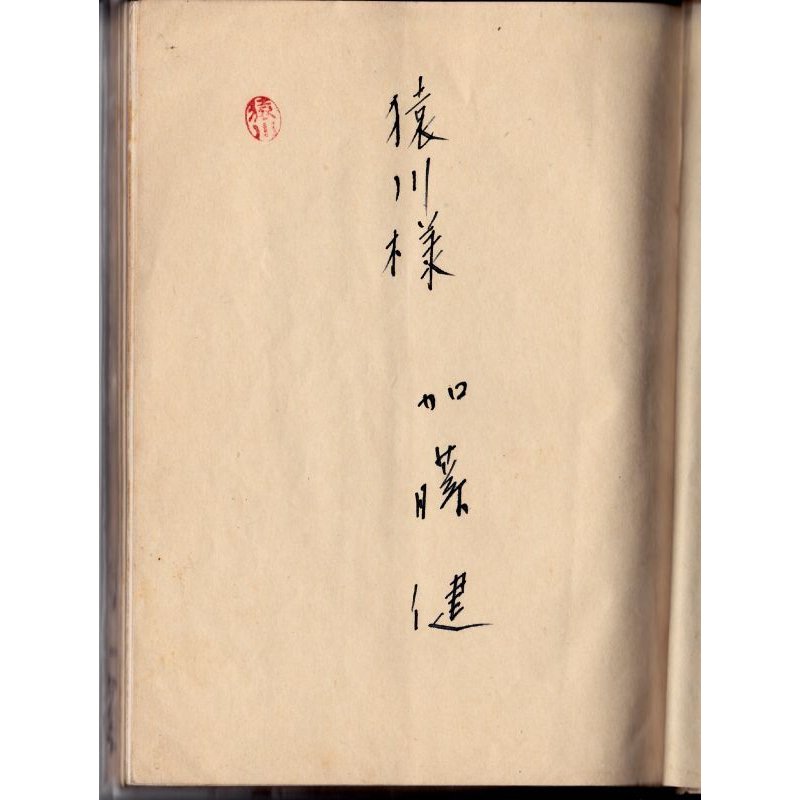 猿川様
加藤健
猿川